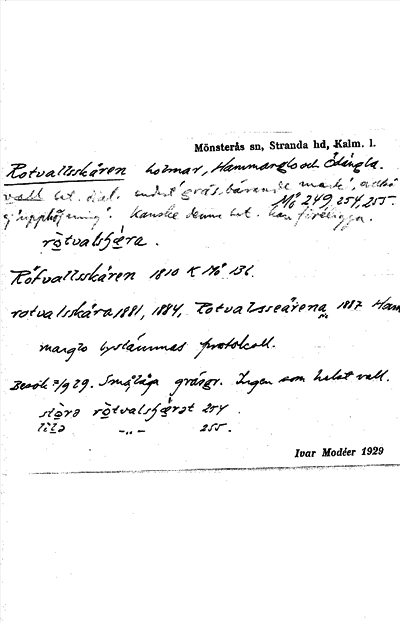 Mönsterås sn, Stranda hd, Kalm. l.
Rotvallsskåren holmar, Hammarglo och Ödängla.
vall bet. dial. endast 'gräsbärande mark', alltså
Mö 249, 254, 255.
ej 'upphöjning'. Kanske denna bet. kan föreligga.
rötvalsʃæra.
Röfvallsskåren 1810 K Mö 136.
rotvalsskåra 1881, 1884, Rotvalsseårena 1887 Ham
marglo bystämmas protokoll.
Besök 2/9 29. Små låga gräsgr. Ingen som helst vall.
störa rötvalsʃæret 254.
lila -„- 255.
Ivar Modéer 1929